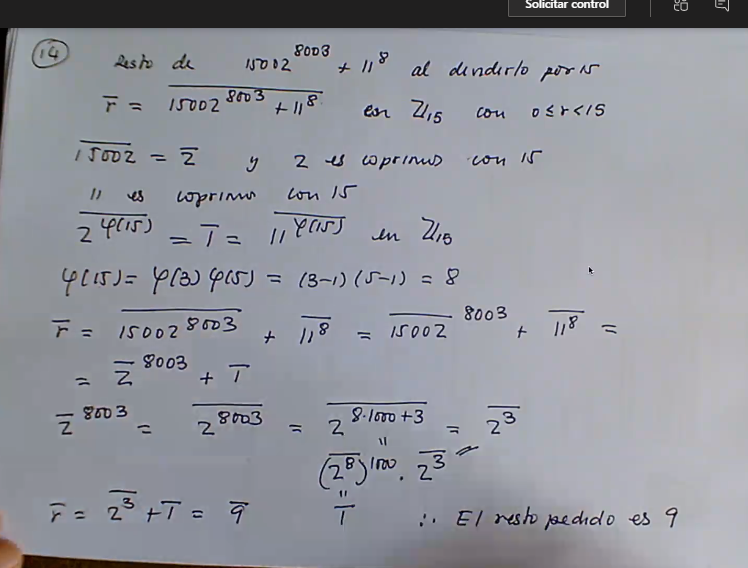 Solicitar control
14
Resto de 15002^8003 + 11^8 al dividirlo por 15
r̅ = \overline{15002^8003 + 11^8} en Z15 con 0 ≤ r < 15
\overline{15002} = \overline{2} y 2 es coprimo con 15
11 es coprimo con 15
\overline{2^φ(15)} = \overline{1} = \overline{11^φ(15)} en Z15
φ(15) = φ(3) φ(5) = (3-1)(5-1) = 8
r̅ = \overline{15002^8003} + \overline{11^8} = \overline{15002}^8003 + \overline{11^8} =
= \overline{2}^8003 + \overline{1}
\overline{2}^8003 = \overline{2^8003} = \overline{2^8·1000+3} = \overline{2^3}
"
(\overline{2^8})^1000 · \overline{2^3}
"
r̅ = \overline{2^3} + \overline{1} = \overline{9} \overline{1} ∴ El resto pedido es 9